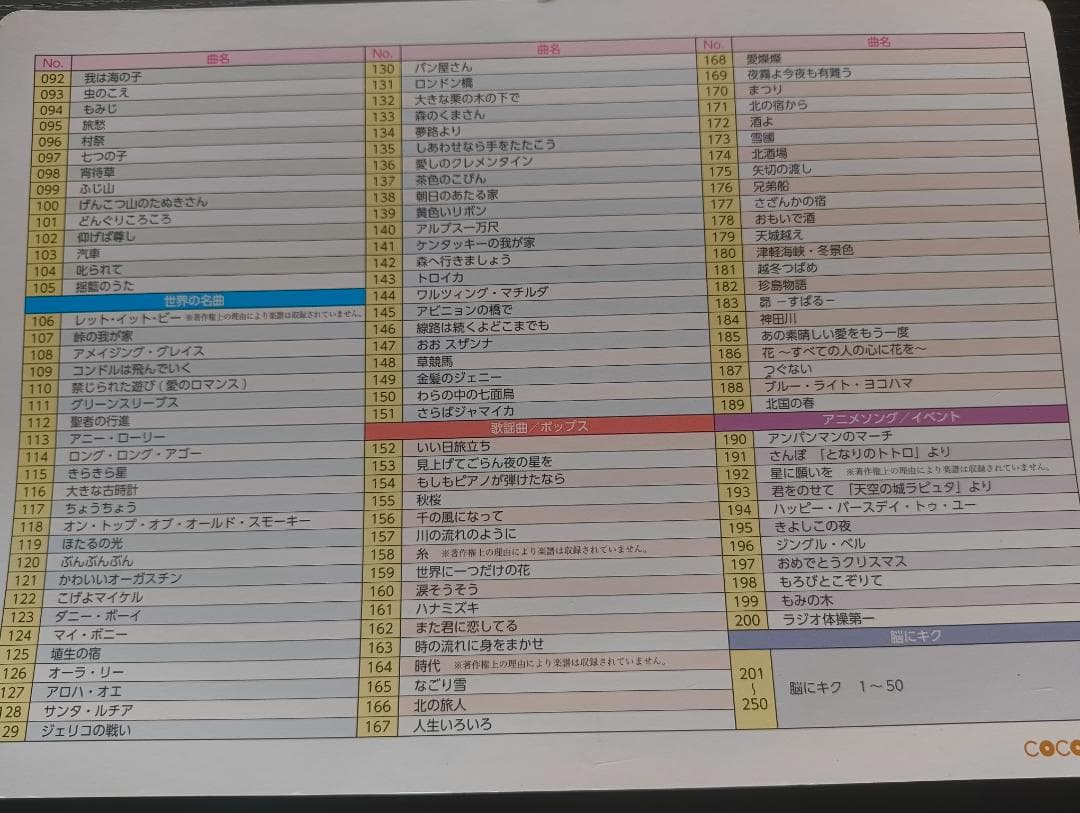 No. 曲名
092 我は海の子
093 虫のこえ
094 もみじ
095 旅愁
096 村祭
097 七つの子
098 宵待草
099 ふじ山
100 げんこつ山のたぬきさん
101 どんぐりころころ
102 仰げば尊し
103 汽車
104 叱られて
105 揺籃のうた
世界の名曲
106 レット・イット・ビー ※著作権上の理由により楽譜は収録されていません。
107 峠の我が家
108 アメイジング・グレイス
109 コンドルは飛んでいく
110 禁じられた遊び(愛のロマンス)
111 グリーンスリーブス
112 聖者の行進
113 アニー・ローリー
114 ロング・ロング・アゴー
115 きらきら星
116 大きな古時計
117 ちょうちょう
118 オン・トップ・オブ・オールド・スモーキー
119 ほたるの光
120 ぶんぶんぶん
121 かわいいオーガスチン
122 こげよマイケル
123 ダニー・ボーイ
124 マイ・ボニー
125 埴生の宿
126 オーラ・リー
127 アロハ・オエ
128 サンタ・ルチア
29 ジェリコの戦い
No. 曲名
130 パン屋さん
131 ロンドン橋
132 大きな栗の木の下で
133 森のくまさん
134 夢路より
135 しあわせなら手をたたこう
136 愛しのクレメンタイン
137 茶色のこびん
138 朝日のあたる家
139 黄色いリボン
140 アルプス一万尺
141 ケンタッキーの我が家
142 森へ行きましょう
143 トロイカ
144 ワルツィング・マチルダ
145 アビニョンの橋で
146 線路は続くよどこまでも
147 おお スザンナ
148 草競馬
149 金髪のジェニー
150 わらの中の七面鳥
151 さらばジャマイカ
歌謡曲／ポップス
152 いい日旅立ち
153 見上げてごらん夜の星を
154 もしもピアノが弾けたなら
155 秋桜
156 千の風になって
157 川の流れのように
158 糸 ※著作権上の理由により楽譜は収録されていません。
159 世界に一つだけの花
160 涙そうそう
161 ハナミズキ
162 また君に恋してる
163 時の流れに身をまかせ
164 時代 ※著作権上の理由により楽譜は収録されていません。
165 なごり雪
166 北の旅人
167 人生いろいろ
No. 曲名
168 愛燦燦
169 夜霧よ今夜も有難う
170 まつり
171 北の宿から
172 酒よ
173 雪國
174 北酒場
175 矢切の渡し
176 兄弟船
177 さざんかの宿
178 おもいで酒
179 天城越え
180 津軽海峡・冬景色
181 越冬つばめ
182 珍島物語
183 昴 －すばる－
184 神田川
185 あの素晴しい愛をもう一度
186 花 ～すべての人の心に花を～
187 つぐない
188 ブルー・ライト・ヨコハマ
189 北国の春
アニメソング／イベント
190 アンパンマンのマーチ
191 さんぽ 「となりのトトロ」より
192 星に願いを ※著作権上の理由により楽譜は収録されていません。
193 君をのせて 「天空の城ラピュタ」より
194 ハッピー・バースデイ・トゥ・ユー
195 きよしこの夜
196 ジングル・ベル
197 おめでとうクリスマス
198 もろびとこぞりて
199 もみの木
200 ラジオ体操第一
脳にキク
201～250 脳にキク 1～50
COCO